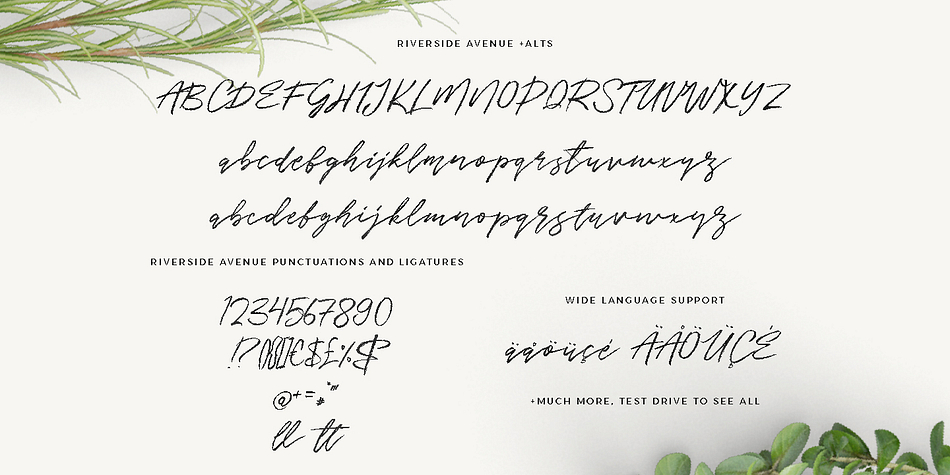 RIVERSIDE AVENUE +ALTS
ABCDEFGHIJKLMNOPQRSTUVWXYZ
abcdefghijklmnopqrstuvwxyz
abcdefghijklmnopqrstuvwxyz
RIVERSIDE AVENUE PUNCTUATIONS AND LIGATURES
1234567890
@+=#"'"
ll tt
WIDE LANGUAGE SUPPORT
äåöüçé ÄÅÖÜÇÉ
+MUCH MORE, TEST DRIVE TO SEE ALL